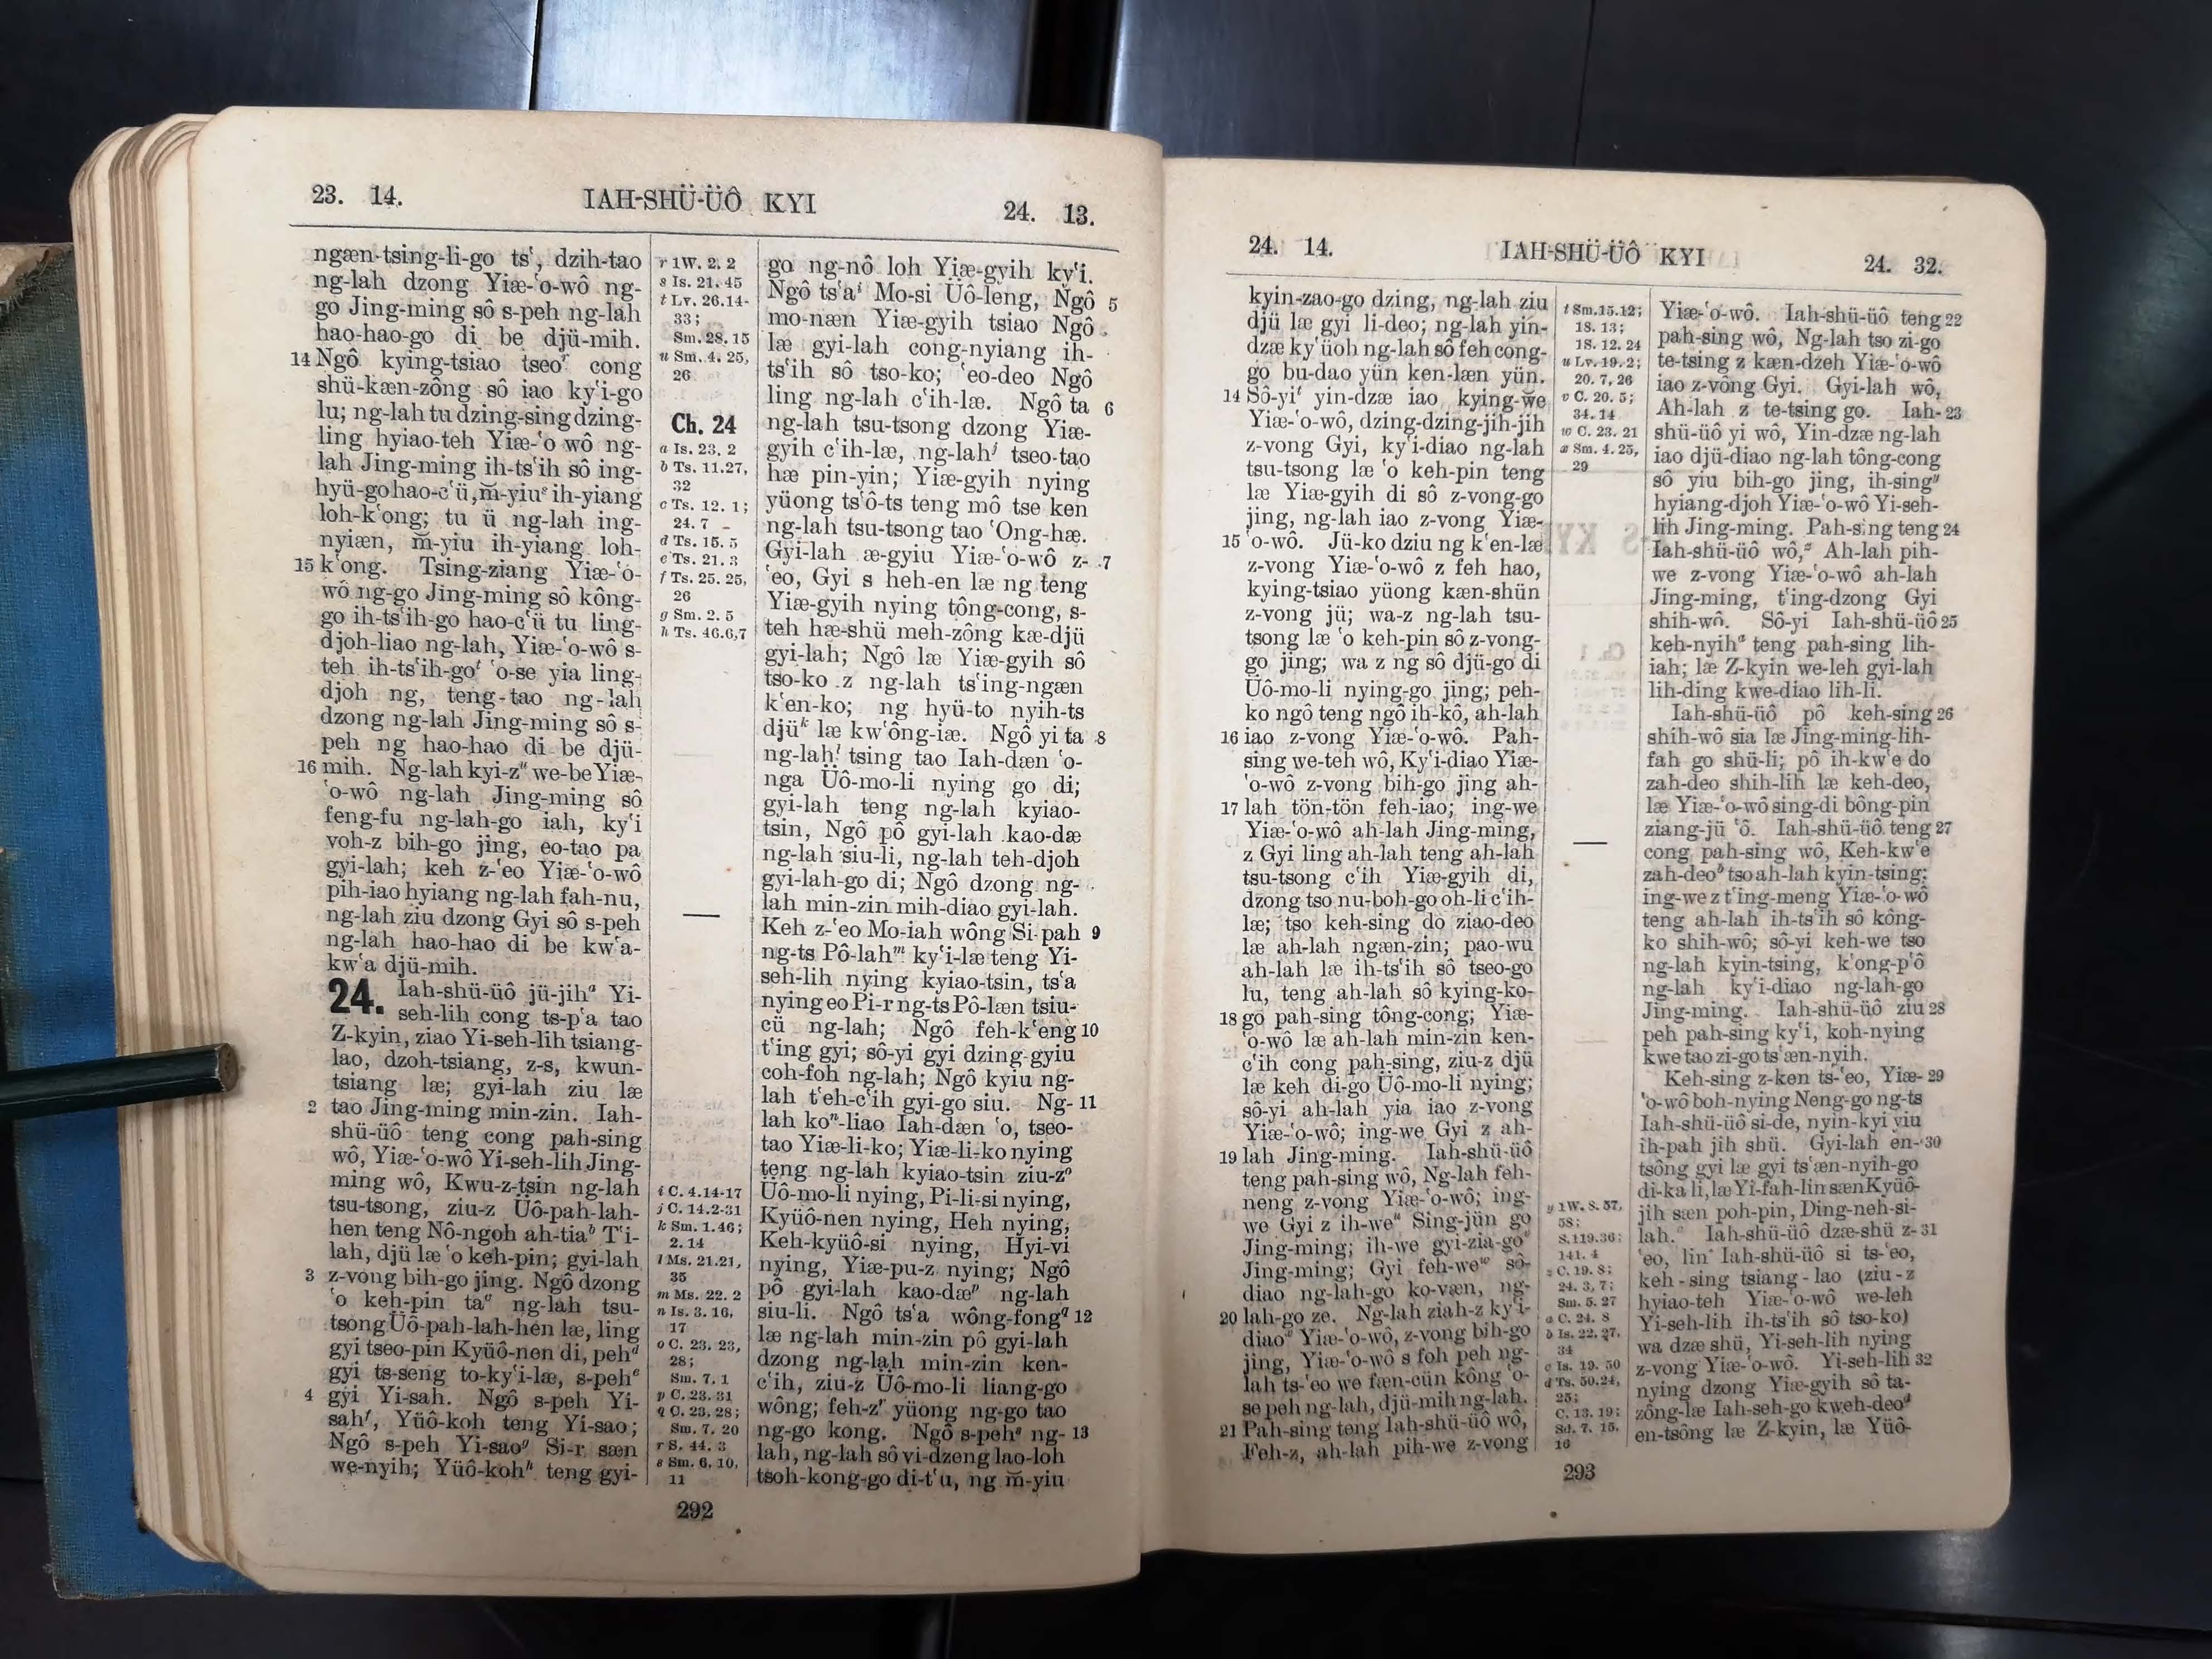 23. 14.
IAH-SHÜ-ÜÔ KYI
24. 13.
ngæn-tsing-li-go tsʻ, dzih-tao
ng-lah dzong Yiæ-ʻo-wô ng-
go Jing-ming sô s-peh ng-lah
hao-hao-go di be djü-mih.
14 Ngô kying-tsiao tseoʳ cong
shü-kæn-zông sô iao kyʻi-go
lu; ng-lah tu dzing-sing dzing-
ling hyiao-teh Yiæ-ʻo wô ng-
lah Jing-ming ih-tsʻih sô ing-
hyü-go hao-cʻü, m̄-yiuˢ ih-yiang
loh-kʻong; tu ü ng-lah ing-
nyiæn, m̄-yiu ih-yiang loh-
15 kʻong. Tsing-ziang Yiæ-ʻo-
wô ng-go Jing-ming sô kông-
go ih-tsʻih-go hao-cʻü tu ling-
djoh-liao ng-lah, Yiæ-ʻo-wô s-
teh ih-tsʻih-goᵗ ʻo-se yia ling-
djoh ng, teng-tao ng-lah
dzong ng-lah Jing-ming sô s-
peh ng hao-hao di be djü-
16 mih. Ng-lah kyi-zᵘ we-be Yiæ-
ʻo-wô ng-lah Jing-ming sô
feng-fu ng-lah-go iah, kyʻi
voh-z bih-go jing, eo-tao pa
gyi-lah; keh z-ʻeo Yiæ-ʻo-wô
pih-iao hyiang ng-lah fah-nu,
ng-lah ziu dzong Gyi sô s-peh
ng-lah hao-hao di be kwʻa-
kwʻa djü-mih.
24. Iah-shü-üô jü-jihᵃ Yi-
seh-lih cong ts-pʻa tao
Z-kyin, ziao Yi-seh-lih tsiang-
lao, dzoh-tsiang, z-s, kwun-
tsiang læ; gyi-lah ziu læ
2 tao Jing-ming min-zin. Iah-
shü-üô teng cong pah-sing
wô, Yiæ-ʻo-wô Yi-seh-lih Jing-
ming wô, Kwu-z-tsin ng-lah
tsu-tsong, ziu-z Üô-pah-lah-
hen teng Nô-ngoh ah-tiaᵇ Tʻi-
lah, djü læ ʻo keh-pin; gyi-lah
3 z-vong bih-go jing. Ngô dzong
ʻo keh-pin taᶜ ng-lah tsu-
tsong Üô-pah-lah-hen læ, ling
gyi tseo-pin Kyüô-nen di, pehᵈ
gyi ts-seng to-kyʻi-læ, s-pehᵉ
4 gyi Yi-sah. Ngô s-peh Yi-
sahᶠ, Yüô-koh teng Yi-sao;
Ngô s-peh Yi-saoᵍ Si-r sæn
we-nyih; Yüô-kohʰ teng gyi-
r 1W. 2. 2
s Is. 21. 45
t Lv. 26.14-
33;
Sm. 28. 15
u Sm. 4. 25,
26
Ch. 24
a Is. 23. 2
b Ts. 11.27,
32
c Ts. 12. 1;
24. 7
d Ts. 15. 5
e Ts. 21. 3
f Ts. 25. 25,
26
g Sm. 2. 5
h Ts. 46.6,7
i C. 4.14-17
j C. 14.2-31
k Sm. 1.46;
2. 14
l Ms. 21.21,
35
m Ms. 22. 2
n Is. 3. 16,
17
o C. 23. 23,
28;
Sm. 7. 1
p C. 23. 31
q C. 23. 28;
Sm. 7. 20
r S. 44. 3
s Sm. 6. 10,
11
go ng-nô loh Yiæ-gyih kyʻi.
Ngô tsʻaⁱ Mo-si Üô-leng, Ngô 5
mo-næn Yiæ-gyih tsiao Ngô
læ gyi-lah cong-nyiang ih-
tsʻih sô tso-ko; ʻeo-deo Ngô
ling ng-lah cʻih-læ. Ngô ta 6
ng-lah tsu-tsong dzong Yiæ-
gyih cʻih-læ, ng-lahʲ tseo-tao
hæ pin-yin; Yiæ-gyih nying
yüong tsʻô-ts teng mô tse ken
ng-lah tsu-tsong tao ʻOng-hæ.
Gyi-lah æ-gyiu Yiæ-ʻo-wô z- 7
ʻeo, Gyi s heh-en læ ng teng
Yiæ-gyih nying tông-cong, s-
teh hæ-shü meh-zông kæ-djü
gyi-lah; Ngô læ Yiæ-gyih sô
tso-ko z ng-lah tsʻing-ngæn
kʻen-ko; ng hyü-to nyih-ts
djüᵏ læ kwʻông-iæ. Ngô yi ta 8
ng-lahˡ tsing tao Iah-dæn ʻo-
nga Üô-mo-li nying go di;
gyi-lah teng ng-lah kyiao-
tsin, Ngô pô gyi-lah kao-dæ
ng-lah siu-li, ng-lah teh-djoh
gyi-lah-go di; Ngô dzong ng-
lah min-zin mih-diao gyi-lah.
Keh z-ʻeo Mo-iah wông Si-pah 9
ng-ts Pô-lahᵐ kyʻi-læ teng Yi-
seh-lih nying kyiao-tsin, tsʻa
nying eo Pi-r ng-ts Pô-læn tsiu-
cü ng-lah; Ngô feh-kʻeng 10
tʻing gyi; sô-yi gyi dzing-gyiu
coh-foh ng-lah; Ngô kyiu ng-
lah tʻeh-cʻih gyi-go siu. Ng- 11
lah koⁿ-liao Iah-dæn ʻo, tseo-
tao Yiæ-li-ko; Yiæ-li-ko nying
teng ng-lah kyiao-tsin ziu-zᵒ
Üô-mo-li nying, Pi-li-si nying,
Kyüô-nen nying, Heh nying,
Keh-kyüô-si nying, Hyi-vi
nying, Yiæ-pu-z nying; Ngô
pô gyi-lah kao-dæᵖ ng-lah
siu-li. Ngô tsʻa wông-fong^q 12
læ ng-lah min-zin pô gyi-lah
dzong ng-lah min-zin ken-
cʻih, ziu-z Üô-mo-li liang-go
wông; feh-zʳ yüong ng-go tao
ng-go kong. Ngô s-pehˢ ng- 13
lah, ng-lah sô vi-dzeng lao-loh
tsoh-kong-go di-tʻu, ng m̄-yiu
292
24. 14.
IAH-SHÜ-ÜÔ KYI
24. 32.
kyin-zao-go dzing, ng-lah ziu
djü læ gyi li-deo; ng-lah yin-
dzæ kyʻüoh ng-lah sô feh cong-
go bu-dao yün ken-læn yün.
14 Sô-yiᵗ yin-dzæ iao kying-we
Yiæ-ʻo-wô, dzing-dzing-jih-jih
z-vong Gyi, kyʻi-diao ng-lah
tsu-tsong læ ʻo keh-pin teng
læ Yiæ-gyih di sô z-vong-go
jing, ng-lah iao z-vong Yiæ-
15 ʻo-wô. Jü-ko dziu ng kʻen-læ
z-vong Yiæ-ʻo-wô z feh hao,
kying-tsiao yüong kæn-shün
z-vong jü; wa-z ng-lah tsu-
tsong læ ʻo keh-pin sô z-vong-
go jing; wa z ng sô djü-go di
Üô-mo-li nying-go jing; peh-
ko ngô teng ngô ih-kô, ah-lah
16 iao z-vong Yiæ-ʻo-wô. Pah-
sing we-teh wô, Kyʻi-diao Yiæ-
ʻo-wô z-vong bih-go jing ah-
17 lah tön-tön feh-iao; ing-we
Yiæ-ʻo-wô ah-lah Jing-ming,
z Gyi ling ah-lah teng ah-lah
tsu-tsong cʻih Yiæ-gyih di,
dzong tso nu-boh-go oh-li cʻih-
læ; tso keh-sing do ziao-deo
læ ah-lah ngæn-zin; pao-wu
ah-lah læ ih-tsʻih sô tseo-go
lu, teng ah-lah sô kying-ko-
18 go pah-sing tông-cong; Yiæ-
ʻo-wô læ ah-lah min-zin ken-
cʻih cong pah-sing, ziu-z djü
læ keh di-go Üô-mo-li nying;
sô-yi ah-lah yia iao z-vong
Yiæ-ʻo-wô; ing-we Gyi z ah-
19 lah Jing-ming. Iah-shü-üô
teng pah-sing wô, Ng-lah feh-
neng z-vong Yiæ-ʻo-wô; ing-
we Gyi z ih-weᵘ Sing-jün go
Jing-ming; ih-we gyi-zia-goᵛ
Jing-ming; Gyi feh-weʷ sô-
diao ng-lah-go ko-væn, ng-
20 lah-go ze. Ng-lah ziah-z kyʻi-
diaoˣ Yiæ-ʻo-wô, z-vong bih-go
jing, Yiæ-ʻo-wô s foh peh ng-
lah ts-ʻeo we fæn-cün kông ʻo-
se peh ng-lah, djü-mih ng-lah.
21 Pah-sing teng Iah-shü-üô wô,
Feh-z, ah-lah pih-we z-vong
t Sm.15.12;
1S. 13;
1S. 12. 24
u Lv. 19. 2;
20. 7, 26
v C. 20. 5;
34. 14
w C. 23. 21
x Sm. 4. 25,
29
y 1W. S. 57,
58;
S.119.36;
141. 4
z C. 19. 8;
24. 3, 7;
Sm. 5. 27
a C. 24. 8
b Is. 22. 27,
34
c Is. 19. 50
d Ts. 50.24,
25;
C. 13. 19;
Sd. 7. 15,
16
Yiæ-ʻo-wô. Iah-shü-üô teng 22
pah-sing wô, Ng-lah tso zi-go
te-tsing z kæn-dzeh Yiæ-ʻo-wô
iao z-vông Gyi. Gyi-lah wô,
Ah-lah z te-tsing go. Iah- 23
shü-üô yi wô, Yin-dzæ ng-lah
iao djü-diao ng-lah tông-cong
sô yiu bih-go jing, ih-singʸ
hyiang-djoh Yiæ-ʻo-wô Yi-seh-
lih Jing-ming. Pah-sing teng 24
Iah-shü-üô wô,ᶻ Ah-lah pih-
we z-vong Yiæ-ʻo-wô ah-lah
Jing-ming, tʻing-dzong Gyi
shih-wô. Sô-yi Iah-shü-üô 25
keh-nyihᵃ teng pah-sing lih-
iah; læ Z-kyin we-leh gyi-lah
lih-ding kwe-diao lih-li.
Iah-shü-üô pô keh-sing 26
shih-wô sia læ Jing-ming-lih-
fah go shü-li; pô ih-kwʻe do
zah-deo shih-lih læ keh-deo,
læ Yiæ-ʻo-wô sing-di bông-pin
ziang-jü ʻô. Iah-shü-üô teng 27
cong pah-sing wô, Keh-kwʻe
zah-deoᵇ tso ah-lah kyin-tsing;
ing-we z tʻing-meng Yiæ-ʻo-wô
teng ah-lah ih-tsʻih sô kông-
ko shih-wô; sô-yi keh-we tso
ng-lah kyin-tsing, kʻong-pʻô
ng-lah kyʻi-diao ng-lah-go
Jing-ming. Iah-shü-üô ziu 28
peh pah-sing kyʻi, koh-nying
kwe tao zi-go tsʻæn-nyih.
Keh-sing z-ken ts-ʻeo, Yiæ- 29
ʻo-wô boh-nying Neng-go ng-ts
Iah-shü-üô si-de, nyin-kyi yiu
ih-pah jih shü. Gyi-lah en- 30
tsông gyi læ gyi tsʻæn-nyih-go
di-ka li, læ Yi-fah-lin sæn Kyüô-
jih sæn poh-pin, Ding-neh-si-
lah.ᶜ Iah-shü-üô dzæ-shü z- 31
ʻeo, lin Iah-shü-üô si ts-ʻeo,
keh-sing tsiang-lao (ziu-z
hyiao-teh Yiæ-ʻo-wô we-leh
Yi-seh-lih ih-tsʻih sô tso-ko)
wa dzæ shü, Yi-seh-lih nying
z-vong Yiæ-ʻo-wô. Yi-seh-lih 32
nying dzong Yiæ-gyih sô ta-
zông-læ Iah-seh-go kweh-deoᵈ
en-tsông læ Z-kyin, læ Yüô-
293